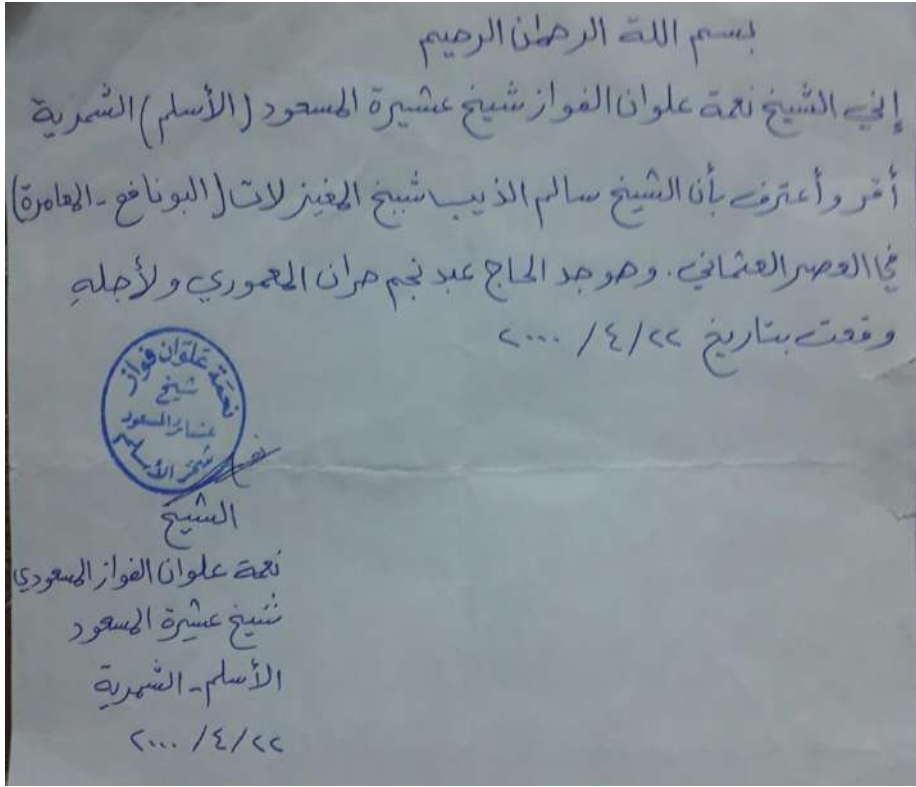 بسم اللة الرحمان الرحيم
إني الشيخ نعمة علوان الفواز شيخ عشيرة المسعود (الأسلم) الشمرية
أقر وأعترف بأن الشيخ سالم الذيب شيخ المغيزلات (البونافع - العامرة)
في العصر العثماني. وهو جد الحاج عبد نجم حران المعموري ولأجلهِ
وقعت بتاريخ ٢٢/٤/٢٠٠٠
نعمة علوان فواز
شيخ
عشائر المسعود
شمر الأسلم
الشيخ
نعمة علوان الفواز المسعودي
شيخ عشيرة المسعود
الأسلم - الشمرية
٢٢/٤/٢٠٠٠